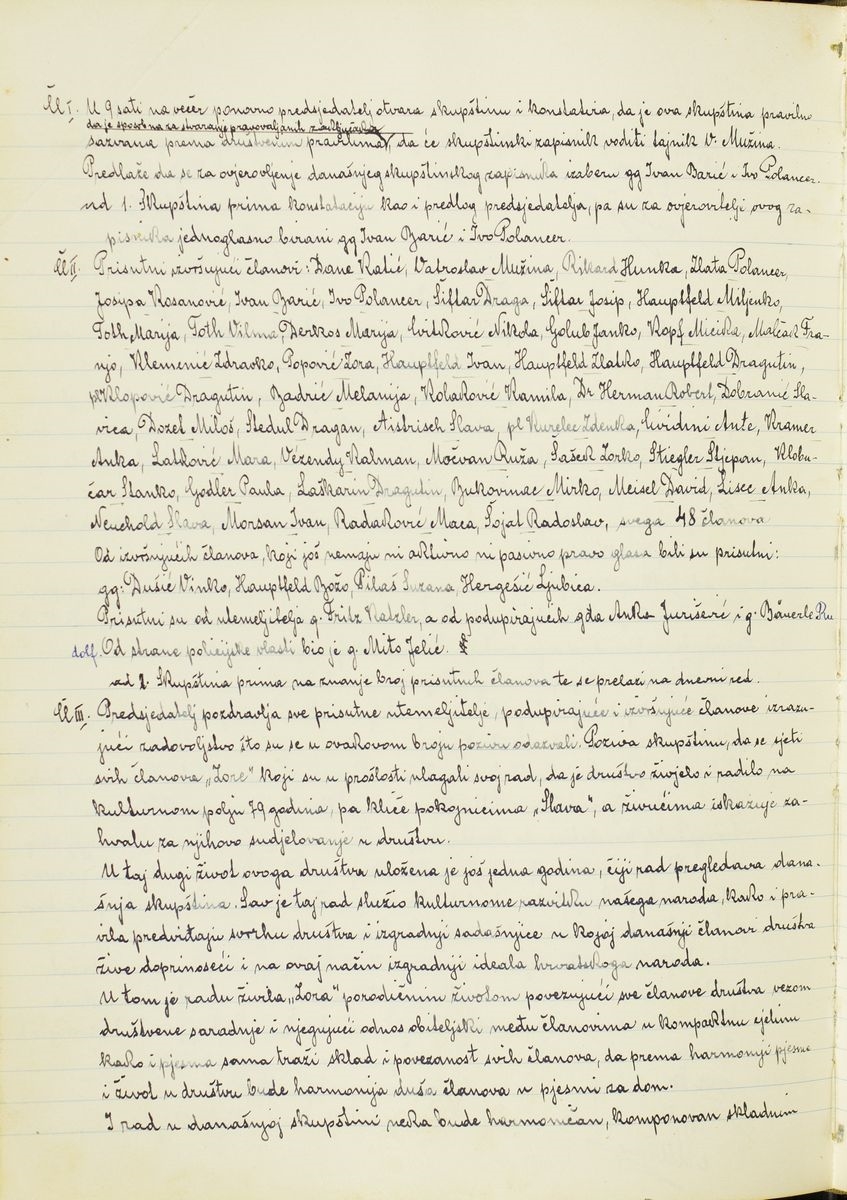 Čl I. U 9 sati na večer ponovno predsjedatelj otvara skupštinu i konstatira, da je ova skupština pravilno
da je sposobna za stvaranje pravovaljanih zaključaka
sazvana prema društvenim pravilima, da će skupštinski zapisnik voditi tajnik V. Mužina.
Predlaže da se za ovjerovljenje današnjeg skupštinskog zapisnika izaberu gg Ivan Barić i Ivo Polancer.
ad 1. Skupština prima konstataciju kao i predlog predsjedatelja, pa su za ovjerovitelji ovog za-
pisnika jednoglasno birani gg Ivan Barić i Ivo Polancer.
Čl II. Prisutni izvršujući članovi: Dane Ratić, Vatroslav Mužina, Rikard Hunka, Zlata Polancer,
Josipa Kosanović, Ivan Barić, Ivo Polancer, Šiftar Draga, Šiftar Josip, Hauptfeld Miljenko,
Toth Marija, Toth Vilma, Derkos Marija, Cvitković Nikola, Golub Janko, Kopf Micika, Malčak Fra-
njo, Klemenić Zdravko, Popović Zora, Hauptfeld Ivan, Hauptfeld Zlatko, Hauptfeld Dragutin,
pl Klopović Dragutin, Badrić Melanija, Kolaković Kamila, Dr Herman Robert, Dobranić Sla-
vica, Dozet Miloš, Stedul Dragan, Aistrisch Slava, pl Kurelec Zdenka, Cividini Ante, Kramer
Anka, Latković Mara, Vézendy Kalman, Močvan Ruža, Šašek Zorko, Stiegler Stjepan, Klobu-
čar Stanko, Godler Paula, Laškarin Dragutin, Bukovinac Mirko, Meisel David, Lisec Anka,
Neuchold Slava, Morsan Ivan, Radaković Maca, Šojat Radoslav, svega 48 članova
Od izvršujućih članova, koji još nemaju ni aktivno ni pasivno pravo glasa bili su prisutni:
gg: Dušić Vinko, Hauptfeld Božo, Pilaš Suzana, Hergešić Ljubica.
Prisutni su od utemeljitelja g. Fritz Katzler, a od podupirajućih gđa Anka Jurišević i g. Bäuerle Ru
dolf. Od strane policijske vlasti bio je g. Mito Jelić.
ad 2. Skupština prima na znanje broj prisutnih članova te se prelazi na dnevni red.
Čl III. Predsjedatelj pozdravlja sve prisutne utemeljitelje, podupirajuće i izvršujuće članove izrazu-
jući zadovoljstvo što su se u ovakovom broju pozivu odazvali. Poziva skupštinu, da se sjeti
svih članova „Zore“ koji su u prošlosti ulagali svoj rad, da je društvo živjelo i radilo na
kulturnom polju 79 godina, pa kliče pokojnicima „Slava“, a živućima iskazuje za-
hvalu za njihovo sudjelovanje u društvu.
U taj dugi život ovoga društva uložena je još jedna godina, čiji rad pregledava dana-
šnja skupština. Sav je taj rad služio kulturnome razvitku našega naroda, kako i pra-
vila predviđaju svrhu društva i izgradnji sadašnjice u kojoj današnji članovi društva
žive doprinoseći i na ovaj način izgradnji ideala hrvatskoga naroda.
U tom je radu živila „Zora“ porodičnim životom povezujući sve članove društva vezom
društvene saradnje i njegujući odnos obiteljski među članovima u kompaktnu cjelinu
kako i pjesma sama traži sklad i povezanost svih članova, da prema harmoniji pjesme
i život u društvu bude harmonija duša članova u pjesmi za dom.
I rad u današnjoj skupštini neka bude harmoničan, komponovan skladnim